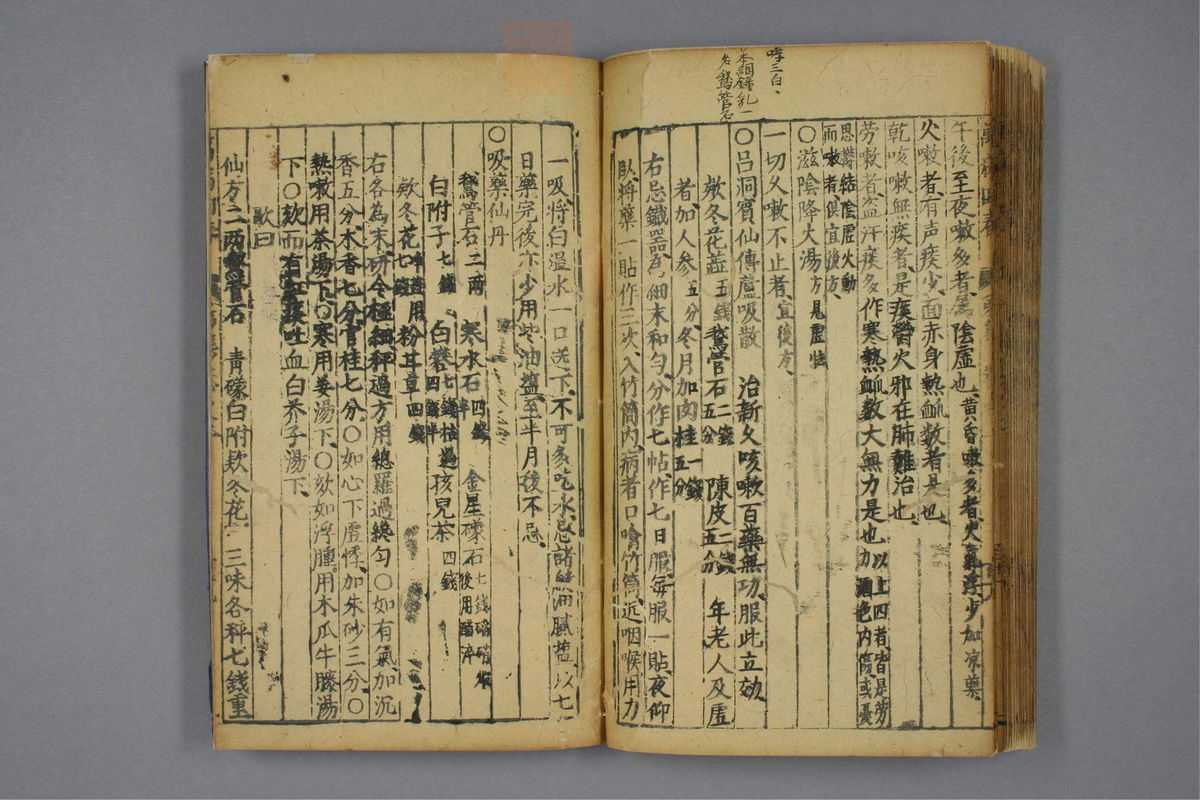 哮三白、
本細鐘乳一
名鵞管石
午後至夜嗽多者、屬陰虛也、黃昏嗽多者、火氣浮少加凉藥、
火嗽者、有声痰少、面赤身熱䘑数者是也、
乾咳嗽無痰者、是痰欝火邪在肺、難治也、
劳嗽者、盗汗痰多作寒熱䘑数大無力是也、以上四者、皆是劳力酒色内傷、或憂
思欝結陰虛火動而嗽者、俱宜後方、
〇滋陰降火湯方見虛怯
一切久嗽不止者、宜後方、
〇呂洞賓仙傳蘆吸散 治新久咳嗽百藥無功、服此立効
欵冬花蕋五錢 鵞管石二錢五分 陳皮二錢五分 年老人及虛
者加人參五分、冬月加肉桂一錢五分
右忌鐵器、為細末和勻、分作七帖、作七日服、每服一貼、夜仰
臥、將藥一貼作三次、入竹筒内、病者口噙竹筒、近咽喉、用力
一吸、將白溫水一口送下、不可多吃水、忌諸油膩塩、以七
日藥完後、亦少用些油塩、至半月後不忌、
〇吸藥仙丹
鵞管石二両 寒水石四錢半 金星礞石七錢硝煆後用醋淬
白附子七錢 白礬七錢枯過四錢半 孩兒茶四錢
欵冬花七錢 粉甘草四錢
右各為末、研令極細、秤過、方用總羅過繞勻〇如有氣、加沉
香五分、木香七分、官桂七分、〇如心下虛悸、加朱砂三分、〇
熱嗽、用茶湯下、〇寒、用姜湯下、〇欬如浮腫、用木瓜牛膝湯
下〇欬而有紅痰吐血、白芥子湯下、
歌曰
仙方二両鵞管石 青礞白附欵冬花 三味各秤七錢重